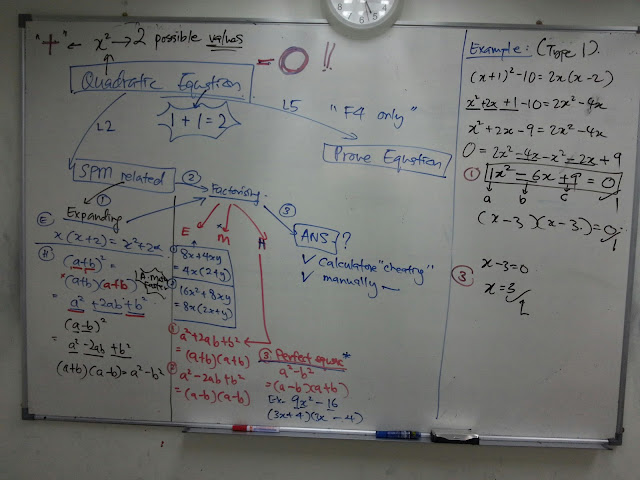 "+" ← x² → 2 possible values
= 0 !!
Quadratic Equation
1 + 1 = 2
L2
L5
"F4 only"
Prove Equation
SPM related
②
Factorising
①
Expanding
③
ANS ?
✓ Calculator "cheating"
✓ manually
E
x(x+2) = x²+2x
H
(a+b)² =
(a+b)(a+b)
= a² + 2ab + b²
(a-b)²
= a² - 2ab + b²
(a+b)(a-b) = a² - b²
E
M
H
8x + 4xy
= 4x(2+y)
16x² + 8xy
= 8x(2x+y)
① a² + 2ab + b²
= (a+b)(a+b)
② a² - 2ab + b²
= (a-b)(a-b)
③ Perfect square *
a² - b²
= (a-b)(a+b)
Ex: 9x² - 16
(3x+4)(3x-4)
Example: (Type 1).
(x+1)² - 10 = 2x(x-2)
x² + 2x + 1 - 10 = 2x² - 4x
x² + 2x - 9 = 2x² - 4x
0 = 2x² - 4x - x² - 2x + 9
① 1x² - 6x + 9 = 0 / 1
a b c
(x-3)(x-3) = 0 / 1
③ x-3=0
x=3 / 1